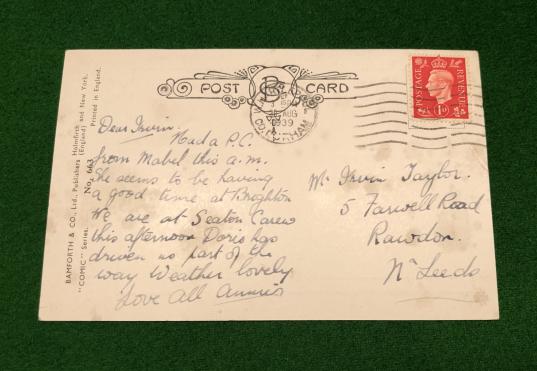 POST CARD
BAMFORTH & CO., Ltd., Publishers Holmfirth (England) and New York.
"COMIC" Series. No. 663 Printed in England.
CO. DURHAM
AUG
1939
POSTAGE REVENUE
1D
Dear Irvin.
Had a P.C.
from Mabel this a.m.
She seems to be having
a good time at Brighton
We are at Seaton Carew
this afternoon Doris has
driven us part of the
way Weather lovely
Love All Annie
Mr. Irvin Taylor.
5 Farwell Road
Rawdon.
Nr Leeds